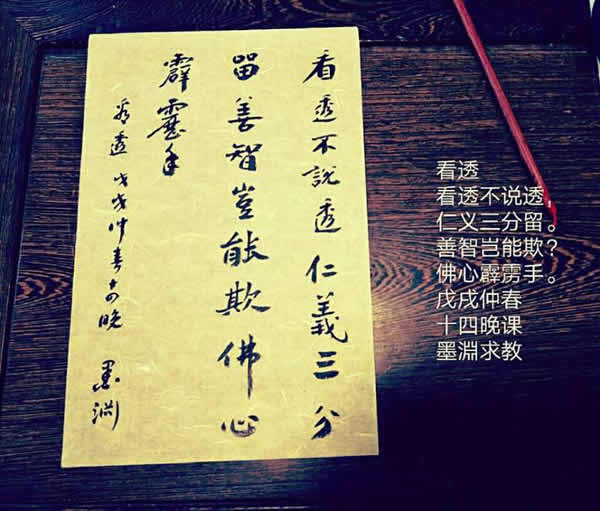 看透不說透仁義三分
留善智豈能欺佛心
霹靂手
看透 戊戌仲春十四晚 墨渊
看透
看透不说透，
仁义三分留。
善智岂能欺？
佛心霹雳手。
戊戌仲春
十四晚课
墨淵求教